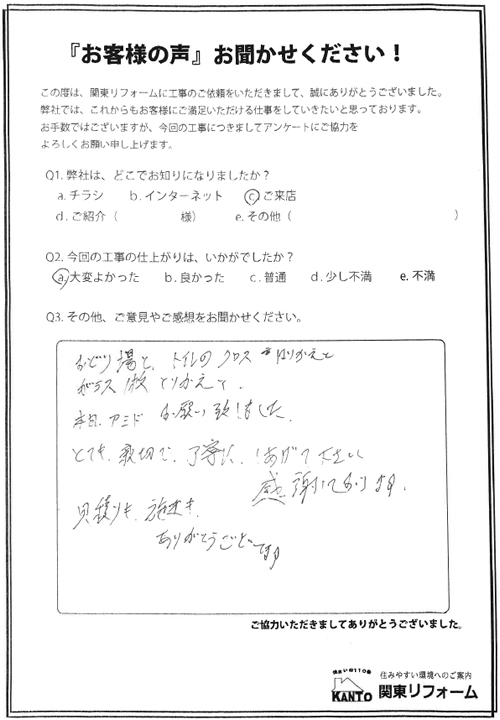 『お客様の声』お聞かせください！
この度は、関東リフォームに工事のご依頼をいただきまして、誠にありがとうございました。
弊社では、これからもお客様にご満足いただける仕事をしていきたいと思っております。
お手数ではございますが、今回の工事につきましてアンケートにご協力を
よろしくお願い申し上げます。
Q1. 弊社は、どこでお知りになりましたか？
a. チラシ b. インターネット c. ご来店
d. ご紹介（ 様） e. その他（ ）
Q2. 今回の工事の仕上がりは、いかがでしたか？
a. 大変よかった b. 良かった c. 普通 d. 少し不満 e. 不満
Q3. その他、ご意見やご感想をお聞かせください。
おどり場と、トイレの クロス はりかえと
ガラス 1枚 とりかえと、
本日、アミド お願い致しました。
とても、親切で、丁寧に、しあげて下さい
感謝しております。
見積りも、施工も、
ありがとうございます
ご協力いただきましてありがとうございました。
住まい の110番
KANTO
住みやすい環境へのご案内
関東リフォーム